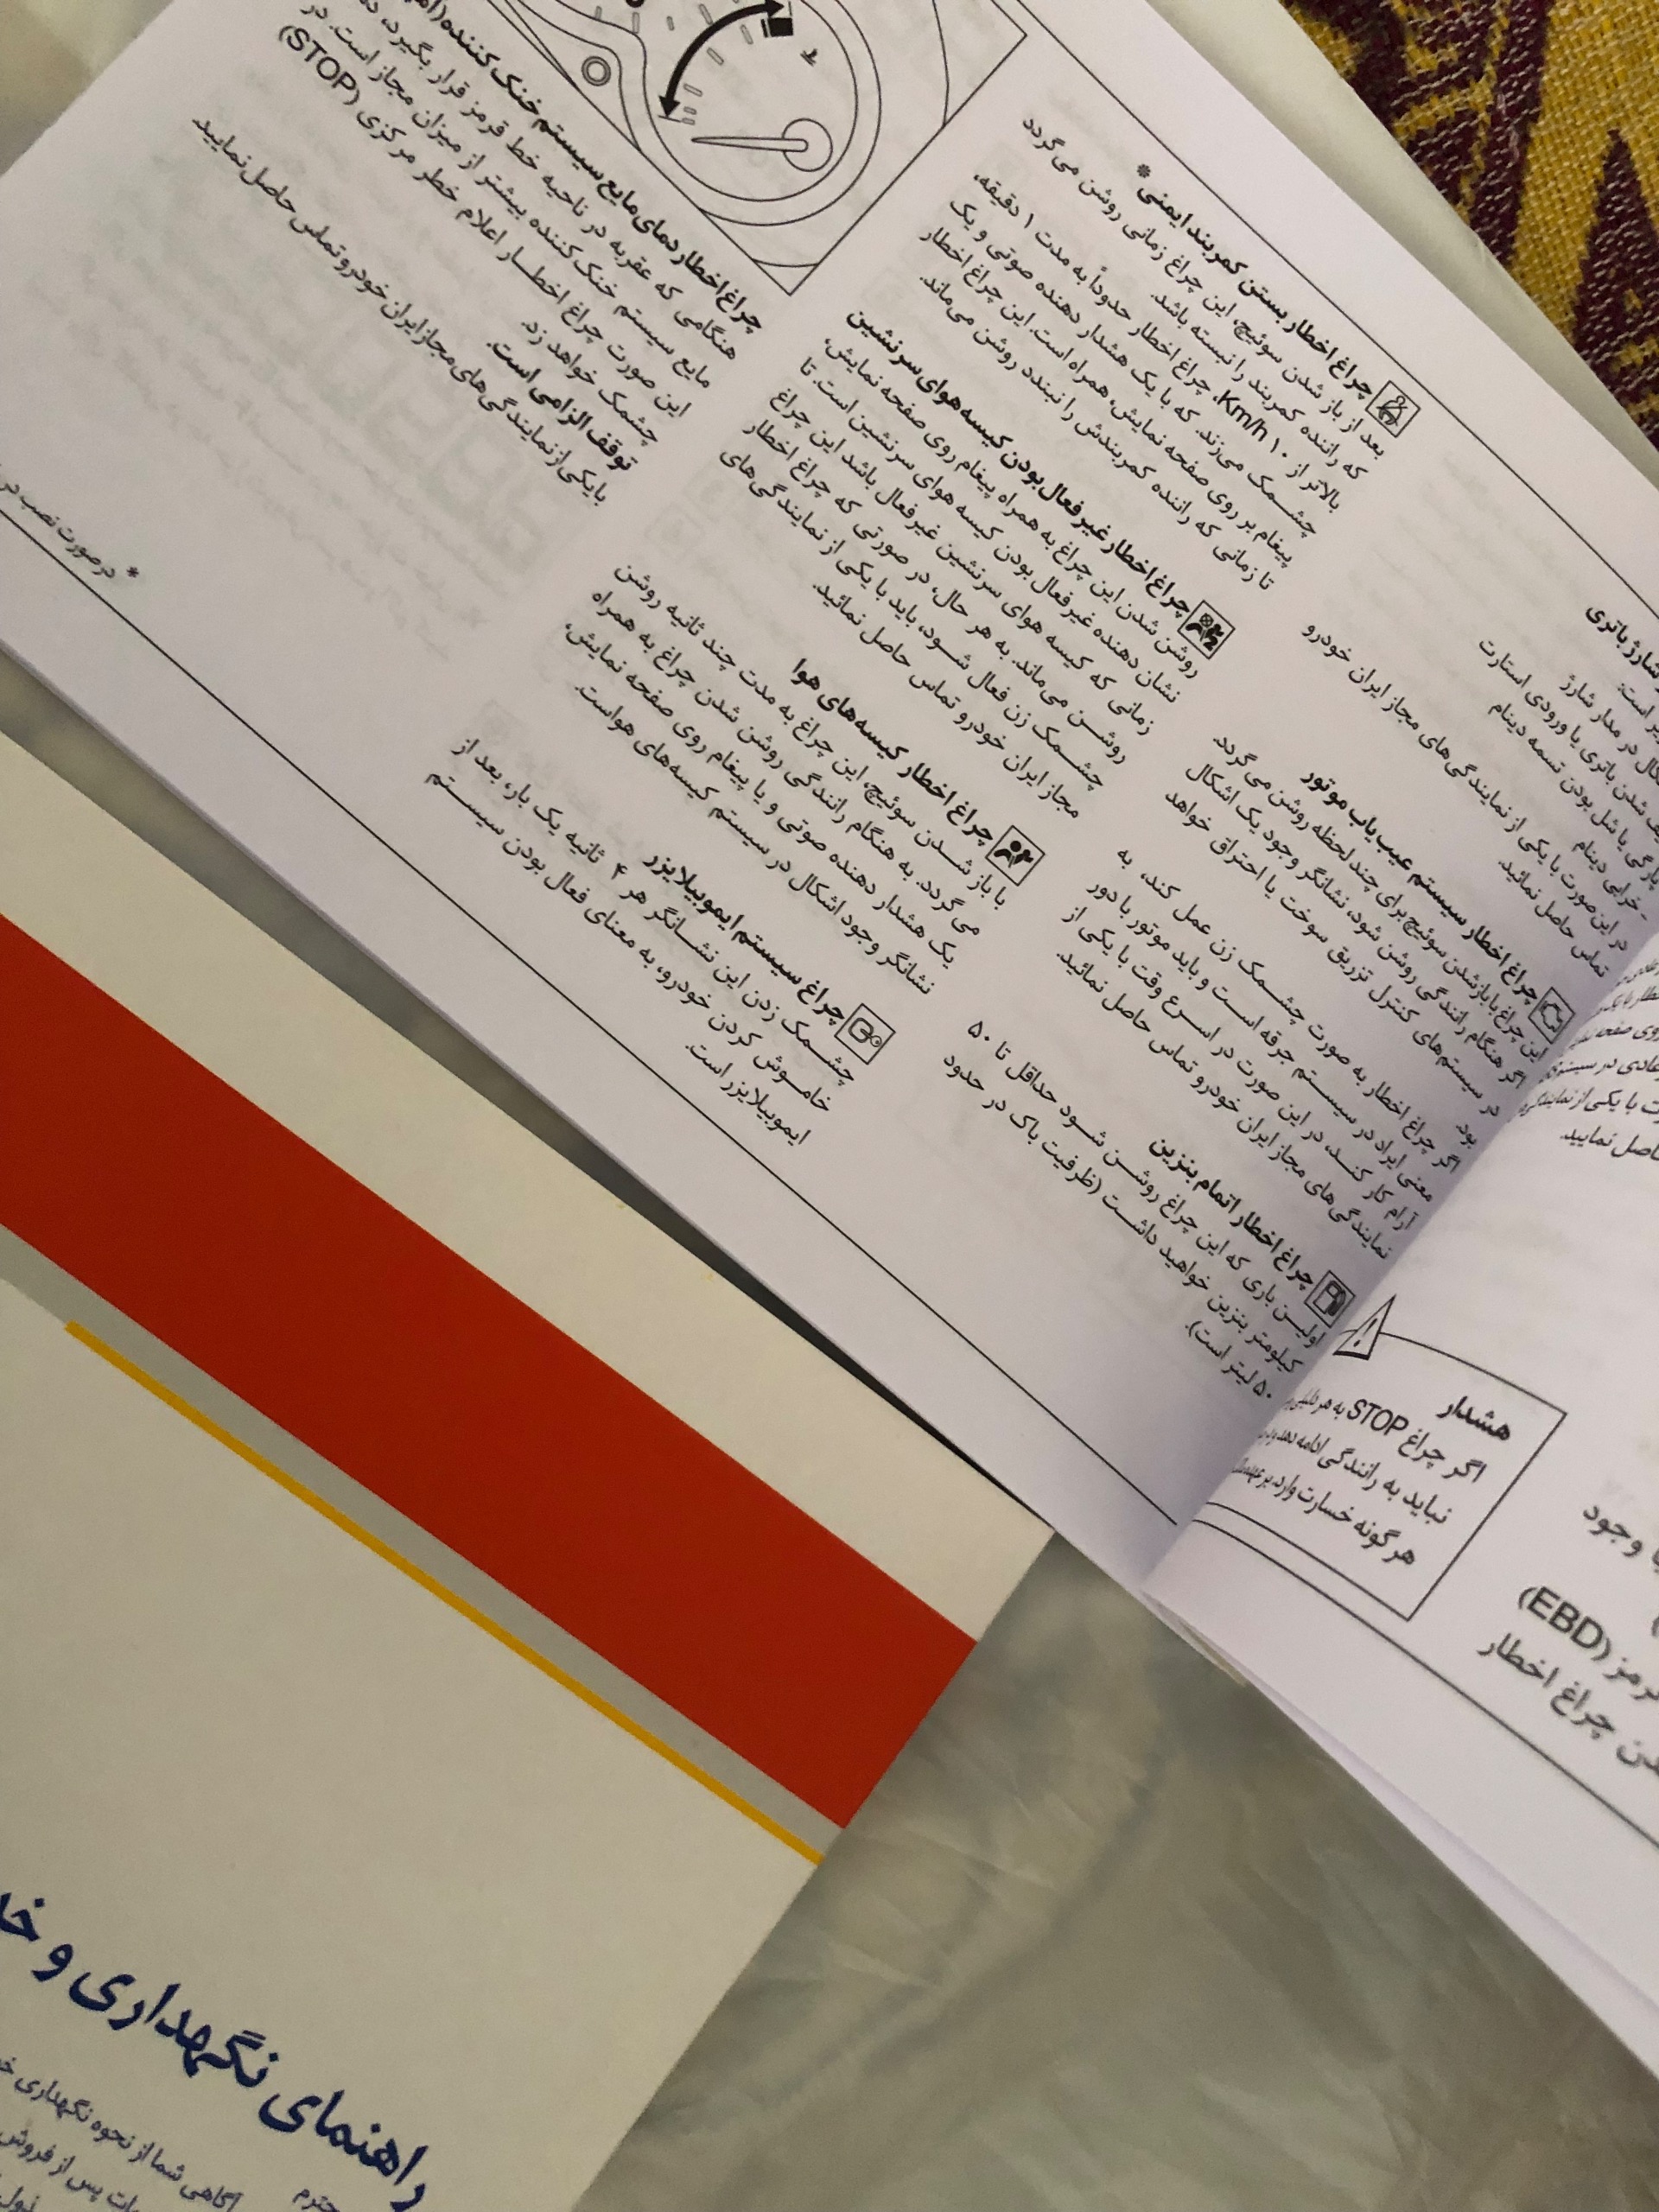 شارژ باتری
در مدار شارژ
شدن باتری یا ورودی استارت
پارگی یا شل بودن تسمه دینام
- خرابی دینام
در این صورت با یکی از نمایندگی‌های مجاز ایران خودرو
تماس حاصل نمائید.
چراغ اخطار سیستم عیب یاب موتور
این چراغ با بازشدن سوئیچ برای چند لحظه روشن می گردد.
اگر هنگام رانندگی روشن شود، نشانگر وجود یک اشکال
در سیستم‌های کنترل تزریق سوخت یا احتراق خواهد
بود.
اگر چراغ اخطار به صورت چشمک زن عمل کند، به
معنی ایراد در سیستم جرقه است و باید موتور با دور
آرام کار کند، در این صورت در اسرع وقت با یکی از
نمایندگی‌های مجاز ایران خودرو تماس حاصل نمائید.
چراغ اخطار اتمام بنزین
اولین باری که این چراغ روشن شود حداقل تا ۵۰
کیلومتر بنزین خواهید داشت (ظرفیت باک در حدود
۵۰ لیتر است).
چراغ اخطار بستن کمربند ایمنی*
بعد از باز شدن سوئیچ، این چراغ زمانی روشن می گردد
که راننده کمربند را نبسته باشد.
بالاتر از ۱۰ Km/h، چراغ اخطار حدوداً به مدت ۱ دقیقه،
چشمک می‌زند. که با یک هشدار دهنده صوتی و یک
پیغام بر روی صفحه نمایش، همراه است. این چراغ اخطار
تا زمانی که راننده کمربندش را نبندد روشن می‌ماند.
چراغ اخطار غیرفعال بودن کیسه هوای سرنشین
روشن شدن این چراغ به همراه پیغام روی صفحه نمایش،
نشان دهنده غیرفعال بودن کیسه هوای سرنشین است. تا
زمانی که کیسه هوای سرنشین غیرفعال باشد این چراغ
روشن می‌ماند. به هر حال، در صورتی که چراغ اخطار
چشمک زن فعال شود، باید با یکی از نمایندگی‌های
مجاز ایران خودرو تماس حاصل نمائید.
چراغ اخطار کیسه‌های هوا
با باز شدن سوئیچ، این چراغ به مدت چند ثانیه روشن
می گردد. به هنگام رانندگی روشن شدن چراغ به همراه
یک هشدار دهنده صوتی و یا پیغام روی صفحه نمایش،
نشانگر وجود اشکال در سیستم کیسه‌های هواست.
چراغ سیستم ایموبیلایزر
چشمک زدن این نشانگر هر ۴ ثانیه یک بار، بعد از
خاموش کردن خودرو، به معنای فعال بودن سیستم
ایموبیلایزر است.
چراغ اخطار دمای مایع سیستم خنک کننده
هنگامی که عقربه در ناحیه خط قرمز قرار بگیرد،
مایع سیستم خنک کننده بیشتر از میزان مجاز است. در
این صورت چراغ اخطار اعلام خطر مرکزی (STOP)
چشمک خواهد زد.
توقف الزامی است.
با یکی از نمایندگی‌های مجاز ایران خودرو تماس حاصل نمایید
* در صورت نصب در
روی صفحه
عادی در سیستم
با یکی از
حاصل نمایید.
هشدار
اگر چراغ STOP به هر
نباید به رانندگی ادامه
هرگونه خسارت وارد
وجود
ترمز (EBD)
چراغ اخطار
راهنمای نگهداری و
آگاهی شما از نحوه نگهداری
پس از فروش